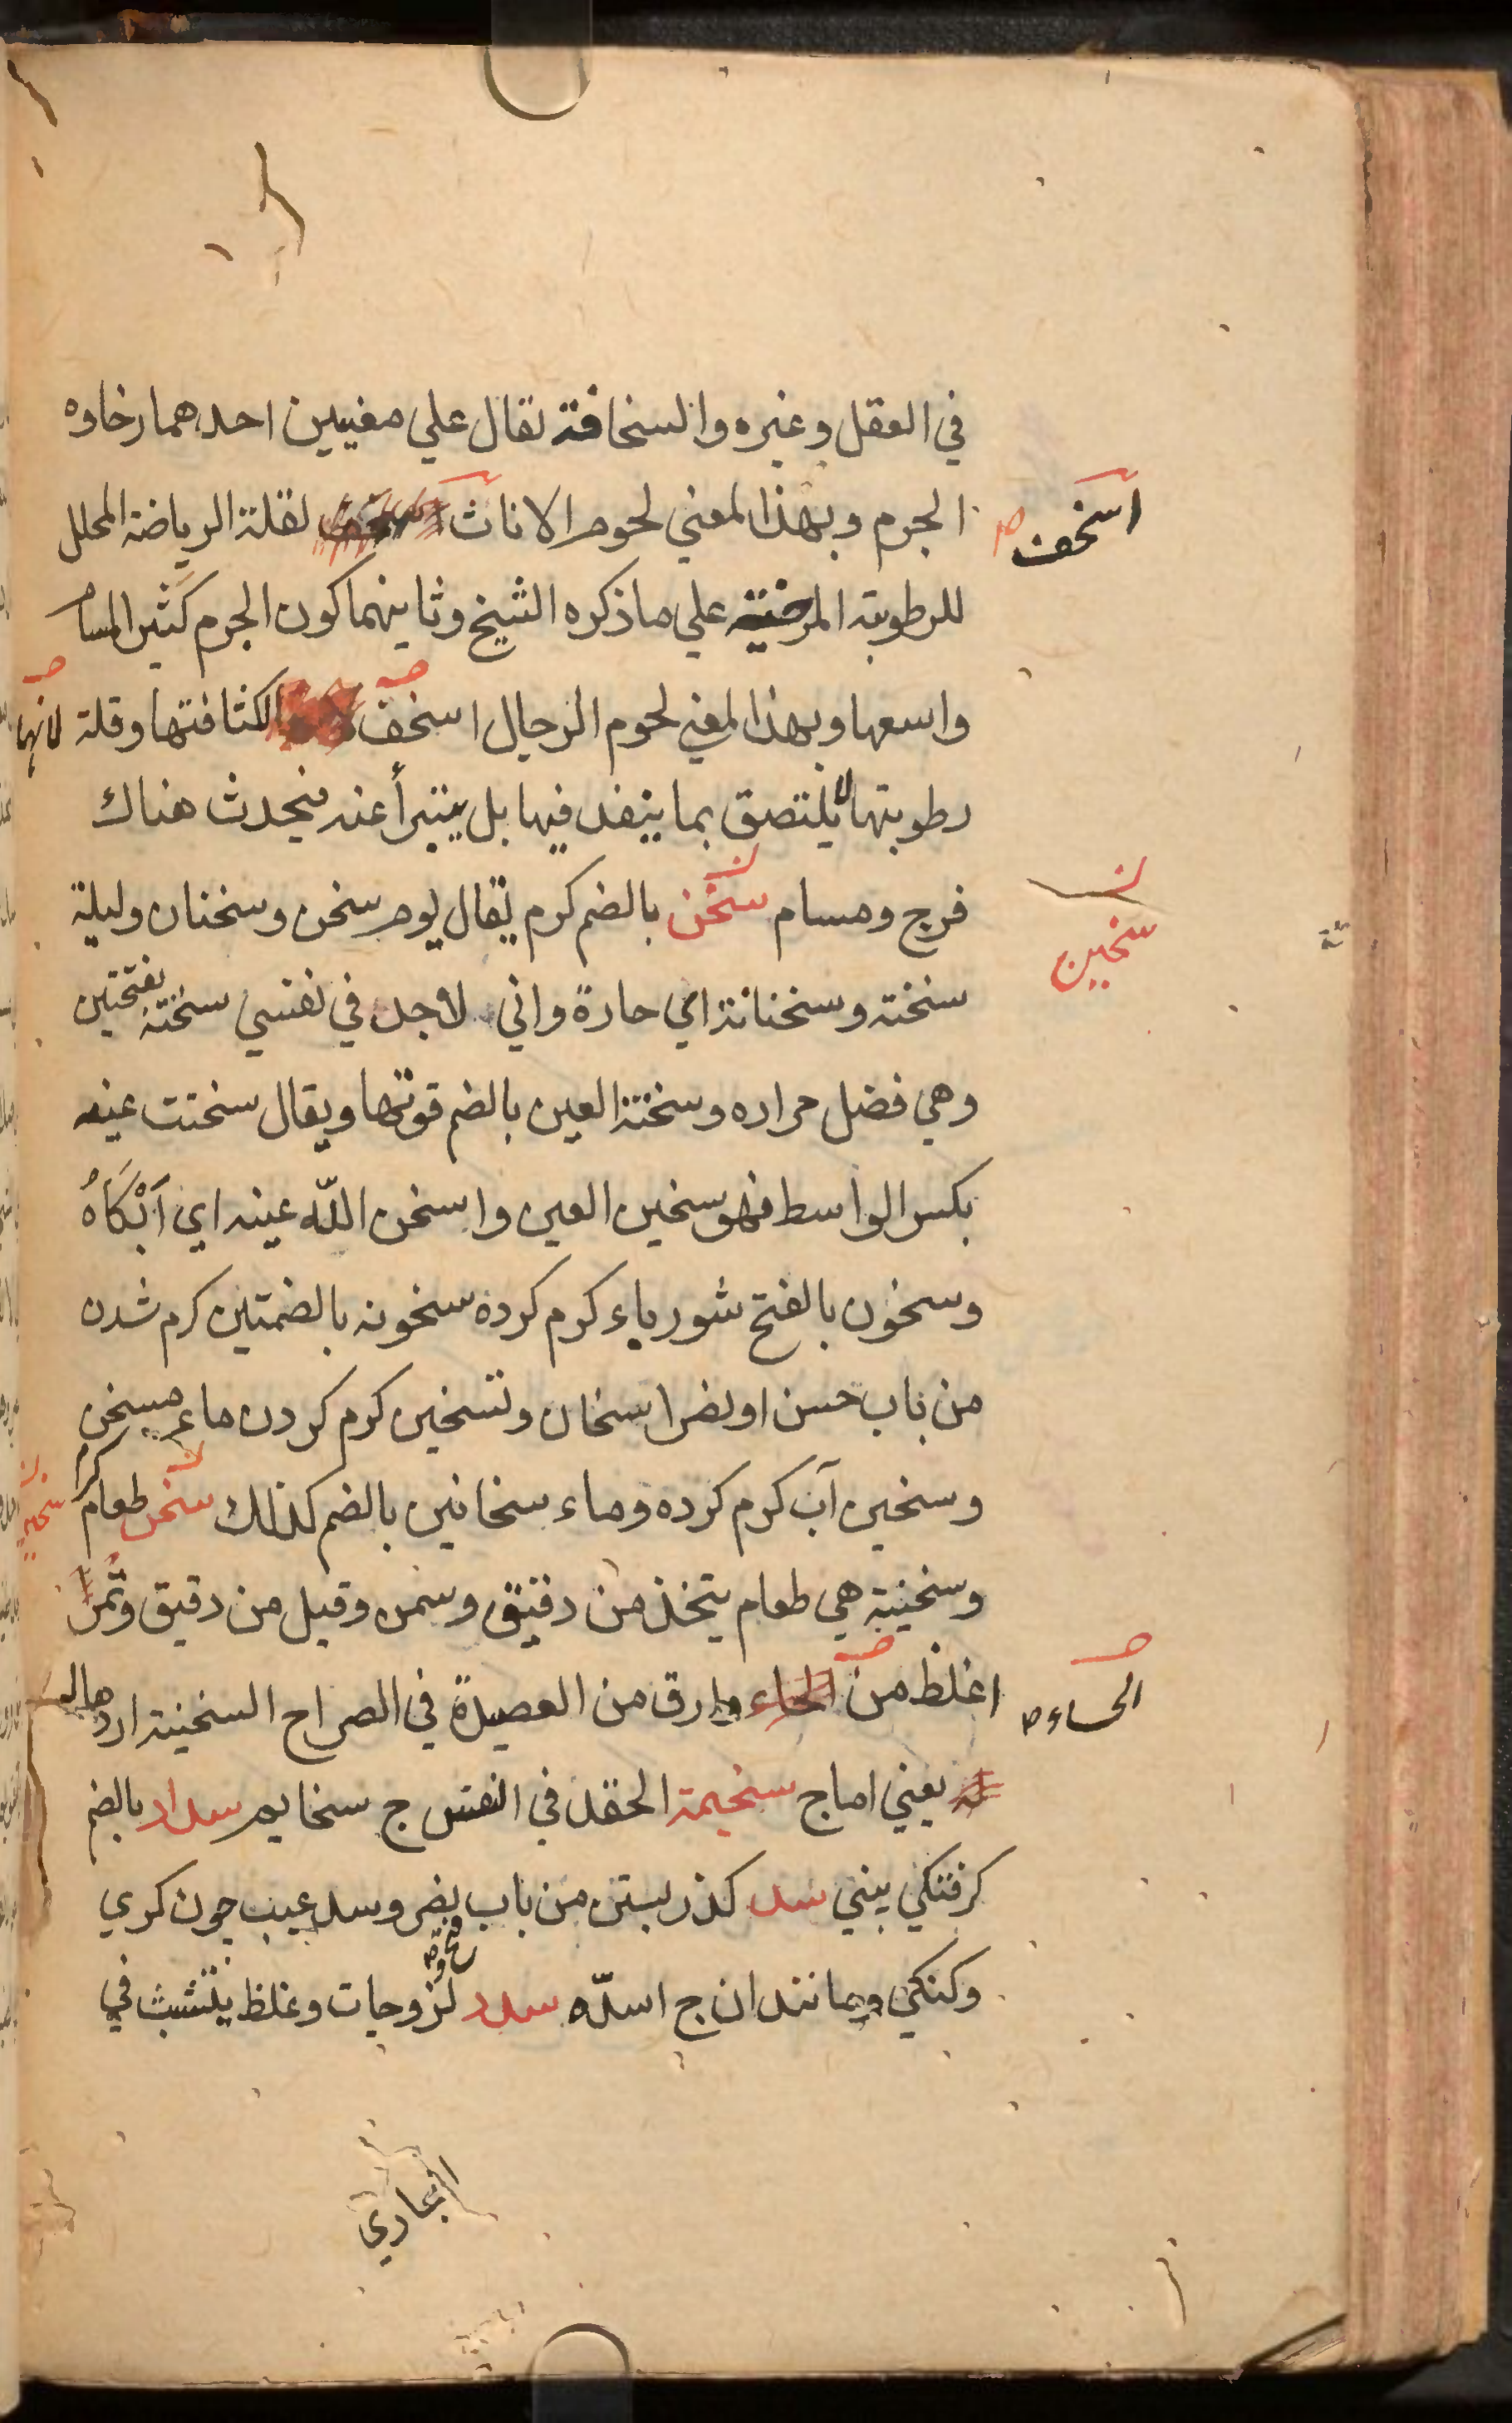 في العقل وغيره والسخافة تقال علي معنيين احدهما رخاوه
الجرم وبهذا لمعني لحوم الاناث لقلة الرياضة المحلل
اسخف ص
للرطوبة المرخية علي ما ذكره الشيخ وثانيهما كون الجرم كثير المسام
واسعها وبهذا لمعني لحوم الرجال اسخف لكثافتها وقلة لانها
رطوبتها لا يلتصق بما ينفد فيها بل يتبرأ عنه فيحدث هناك
فرج ومسام سخن بالضم كرم يقال يوم سخن وسخنان وليلة
سخين
سخنة وسخنانة اي حارة واني لاجد في نفسي سخنة بفتحتين
وهي فضل حراره وسخنة العين بالضم قوتها ويقال سخنت عينه
بكسر الواسط فهو سخين العين واسخن اللّه عينه اي اَبْكَاهُ
وسخون بالفتح شورباء كرم كرده سخونه بالضمتين كرم شدن
من باب حسن او نضر اسخان وتسخين كرم كردن ماء مسخن
وسخين آب كرم كرده وماء سخانين بالضم كذلك سخن طعام كرم
سخين
وسخينة هي طعام يتخذ من دقيق وسمن وقيل من دقيق وتمر
اغلظ من وارق من العصيدة في الصراح السخينة اردهاله
الحساء ص
يعني اماج سخيمة الحقد في النفس ج سخايم سداد بالضم
كرفتكي بيني سد كذر بستن من باب نضر وسد عيب چون كري
وكنكي ومانند ان ج اسدّه سدد لزوجات وغلظ يتشبث في
المجاري